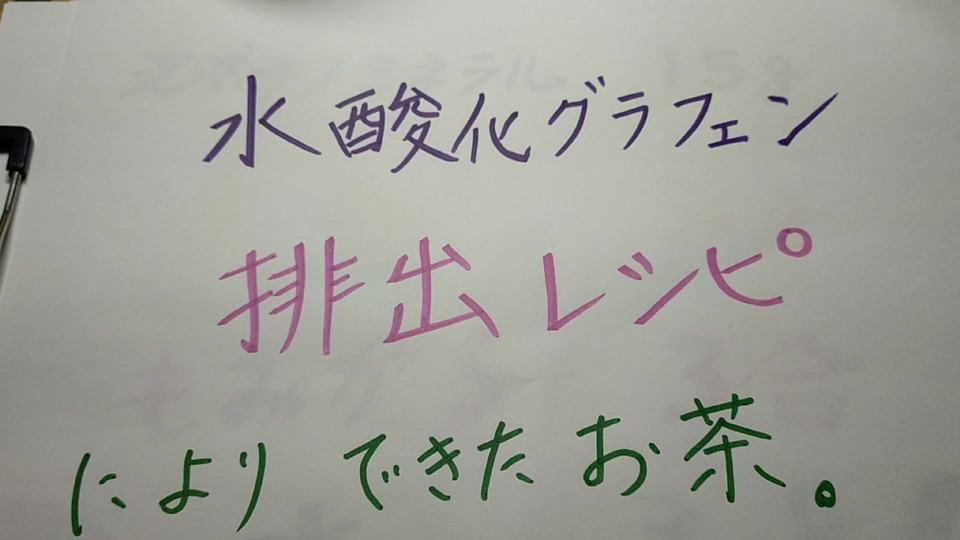 水酸化グラフェン
排出レシピ
により できた お茶。